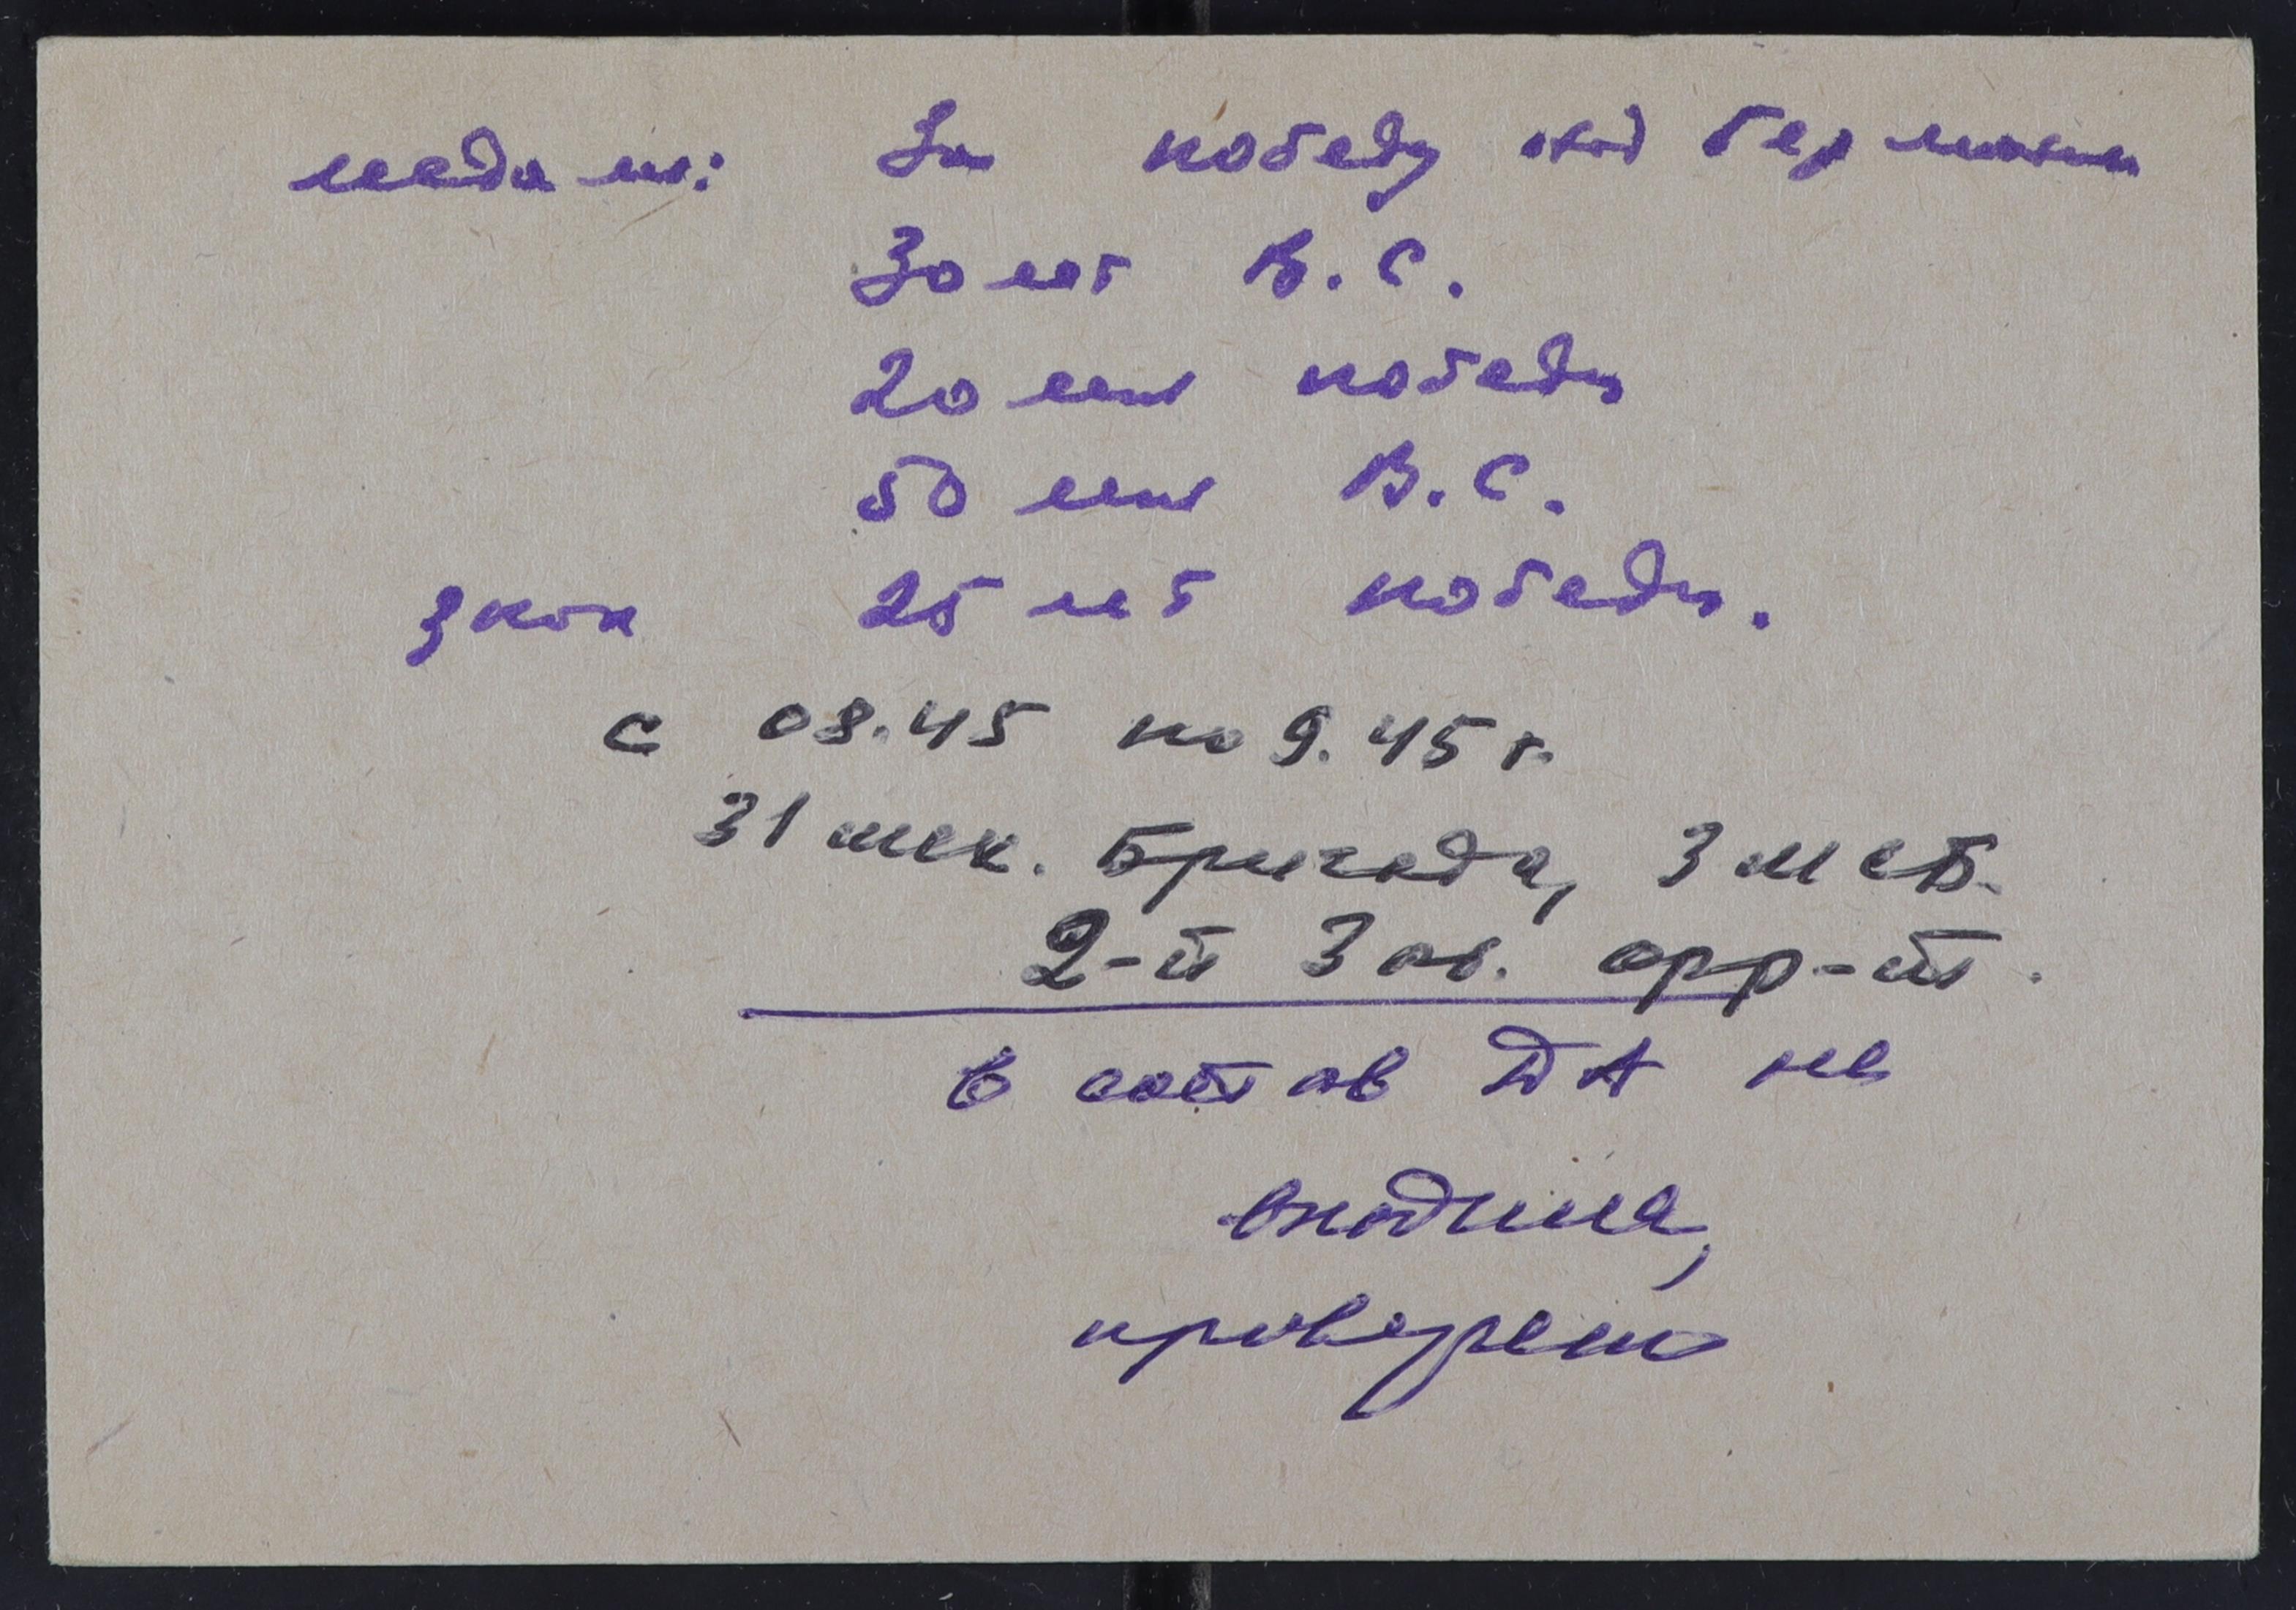 медали: За победу над Германии
30 лет В.С.
20 лет победы
50 лет В.С.
знак 25 лет победы.
с 08.45 по 9.45 г.
31 мех. бригада, 3 мсб.
2-й Заб. фр-т.
в состав ДА не
входила,
проверено